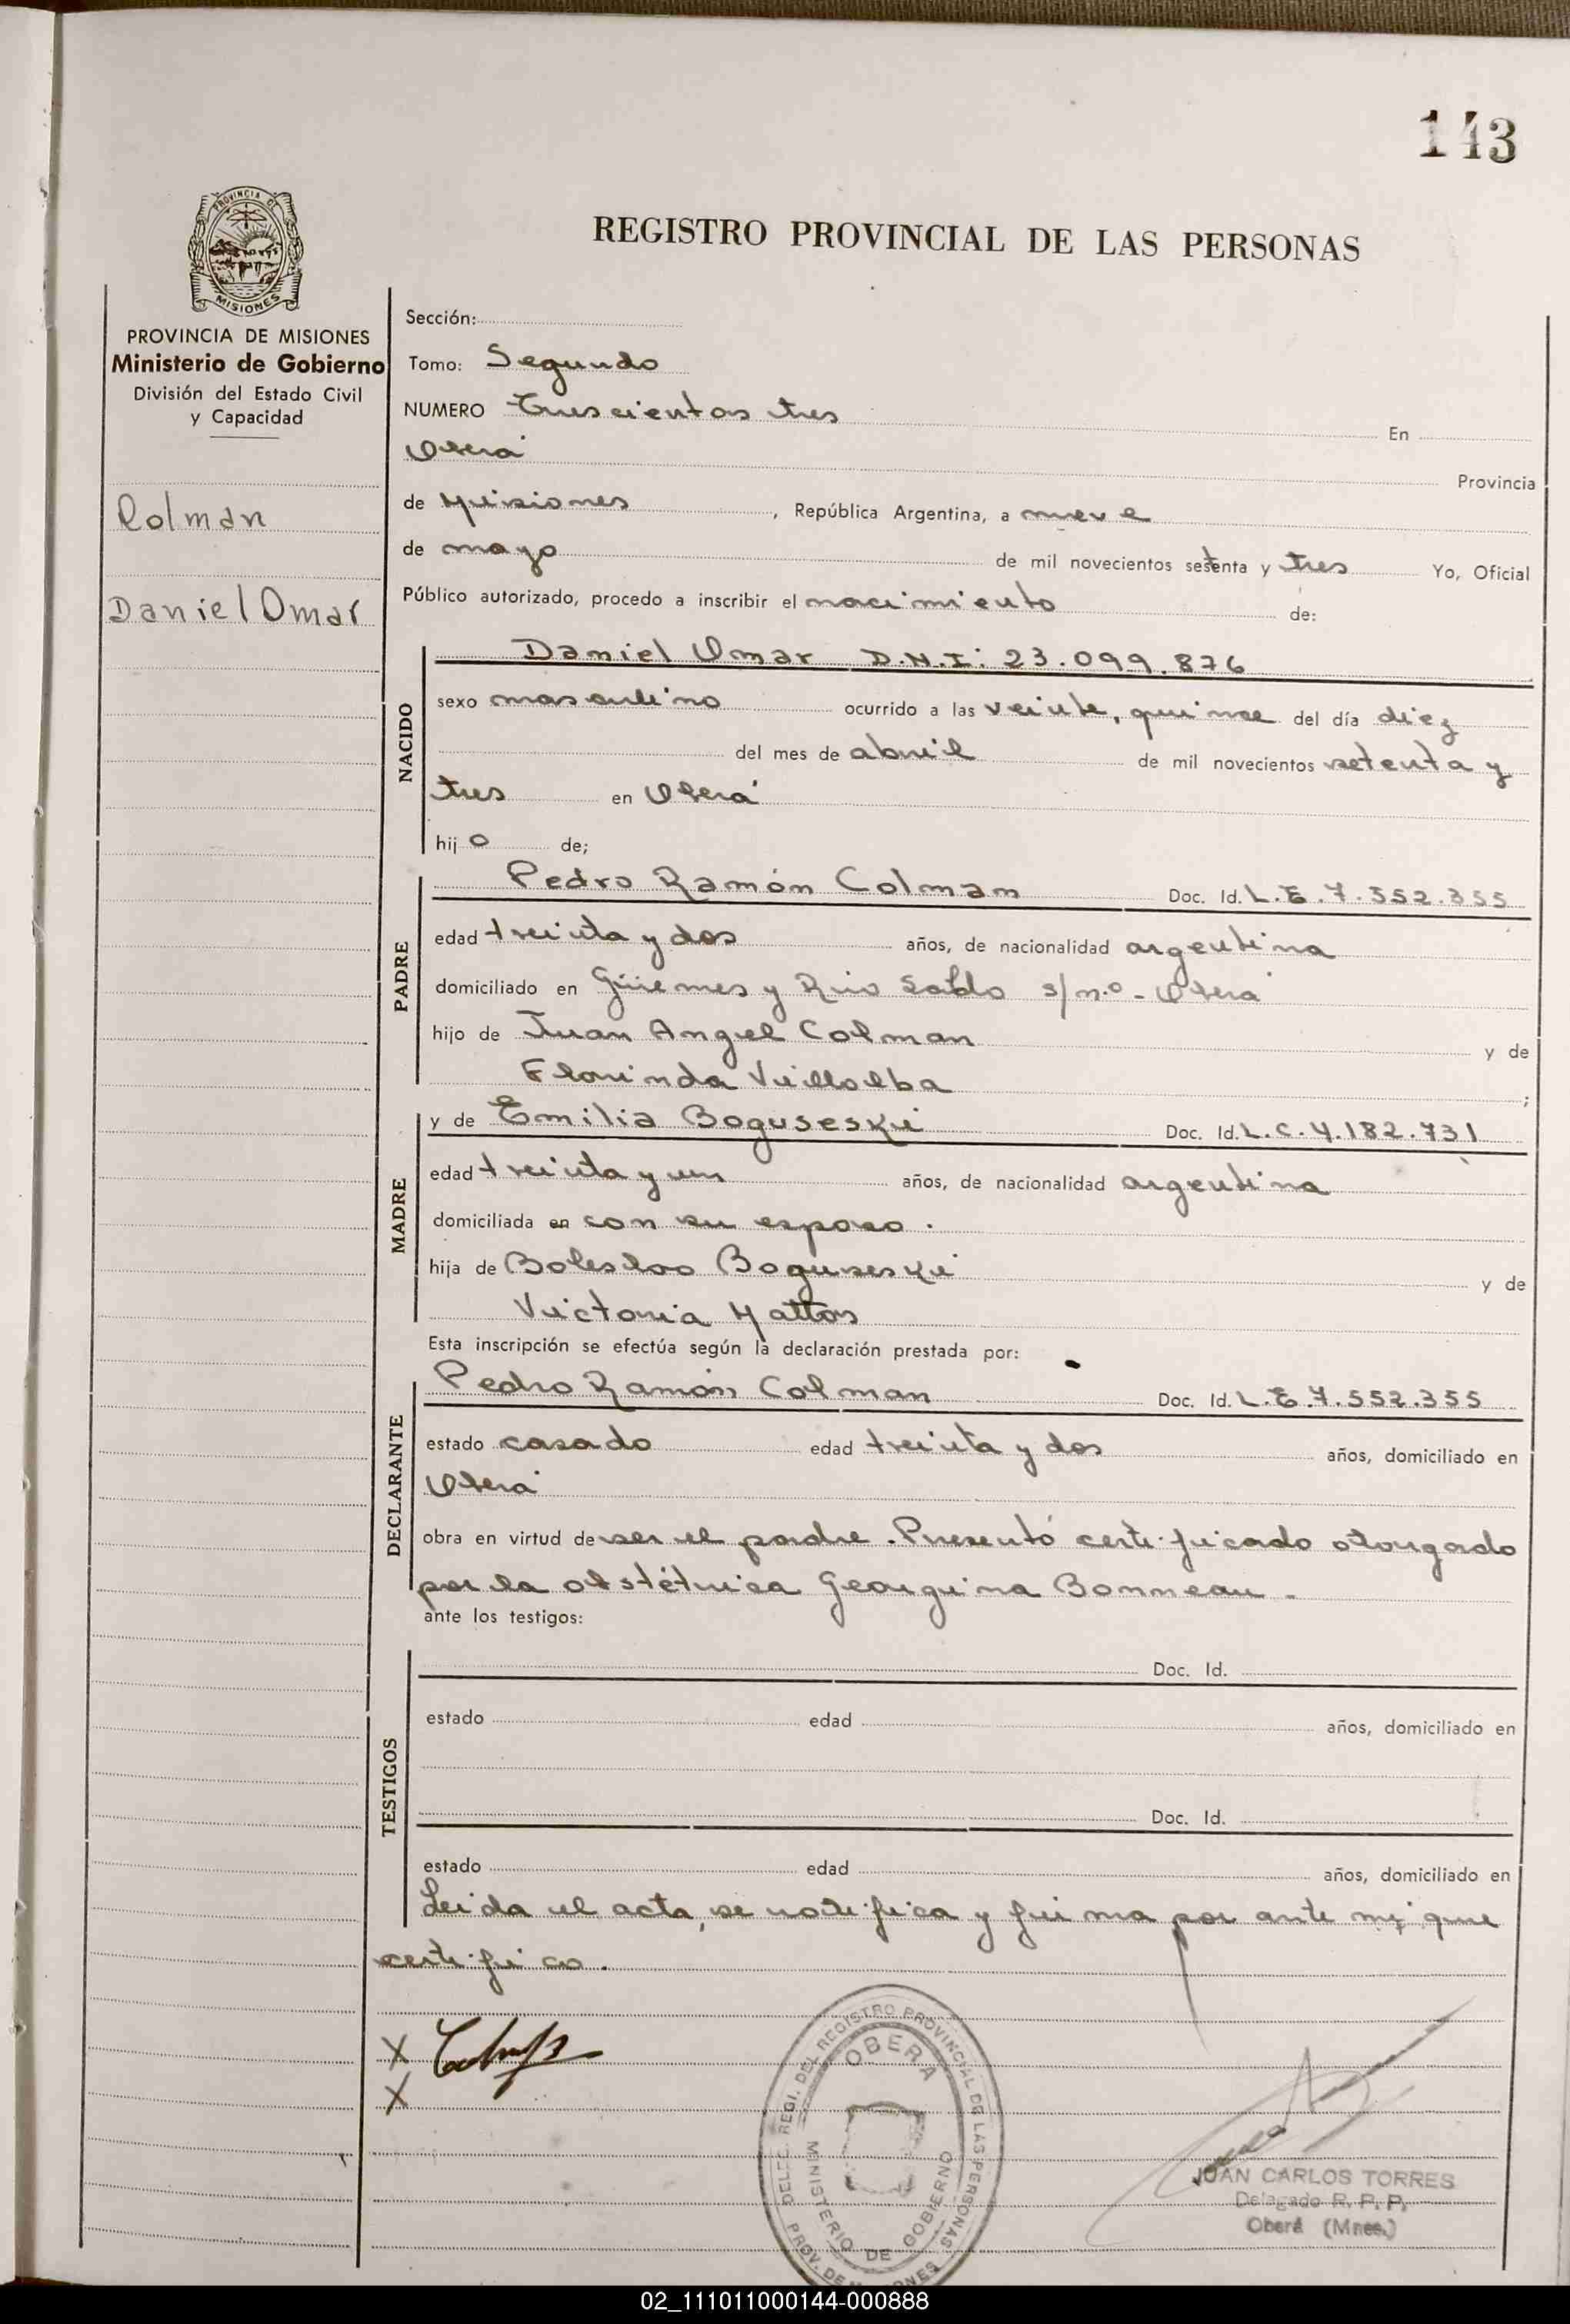 143
PROVINCIA DE
MISIONES
REGISTRO PROVINCIAL DE LAS PERSONAS
PROVINCIA DE MISIONES
Ministerio de Gobierno
División del Estado Civil
y Capacidad
Colman
Daniel Omar
Sección:
Tomo: Segundo
NUMERO Trescientos tres En
Oberá Provincia
de Misiones, República Argentina, a nueve
de mayo de mil novecientos setenta y tres Yo, Oficial
Público autorizado, procedo a inscribir el nacimiento de:
NACIDO
Daniel Omar D.N.I: 23.099.876
sexo masculino ocurrido a las veinte, quince del día diez
del mes de abril de mil novecientos setenta y
tres en Oberá
hijo de;
PADRE
Pedro Ramón Colman Doc. Id. L.E.7.552.355
edad treinta y dos años, de nacionalidad argentina
domiciliado en Güemes y Rio s/n.º - Oberá
hijo de Juan Angel Colman y de
Florinda Villalba ;
MADRE
y de Emilia Boguseski Doc. Id. L.C.4.182.731
edad treinta y un años, de nacionalidad argentina
domiciliada en con su esposo.
hija de Boleslao Boguseski y de
Victoria Mattos
Esta inscripción se efectúa según la declaración prestada por:
DECLARANTE
Pedro Ramón Colman Doc. Id. L.E.7.552.355
estado casado edad treinta y dos años, domiciliado en
Oberá
obra en virtud de ser el padre. Presentó certificado otorgado
por la obstétrica Georgina Bonneau.-
ante los testigos:
TESTIGOS
Doc. Id.
estado edad años, domiciliado en
Doc. Id.
estado edad años, domiciliado en
Leida el acta, se notifica y firma por ante mi que
certifico.
X
X
DELEG. REGI. DEL REGISTRO PROVINCIAL DE LAS PERSONAS
OBERA
MINISTERIO DE GOBIERNO
PROV. DE MISIONES
JUAN CARLOS TORRES
Delegado R. P. P.
Oberá (Mnes.)
02_111011000144-000888